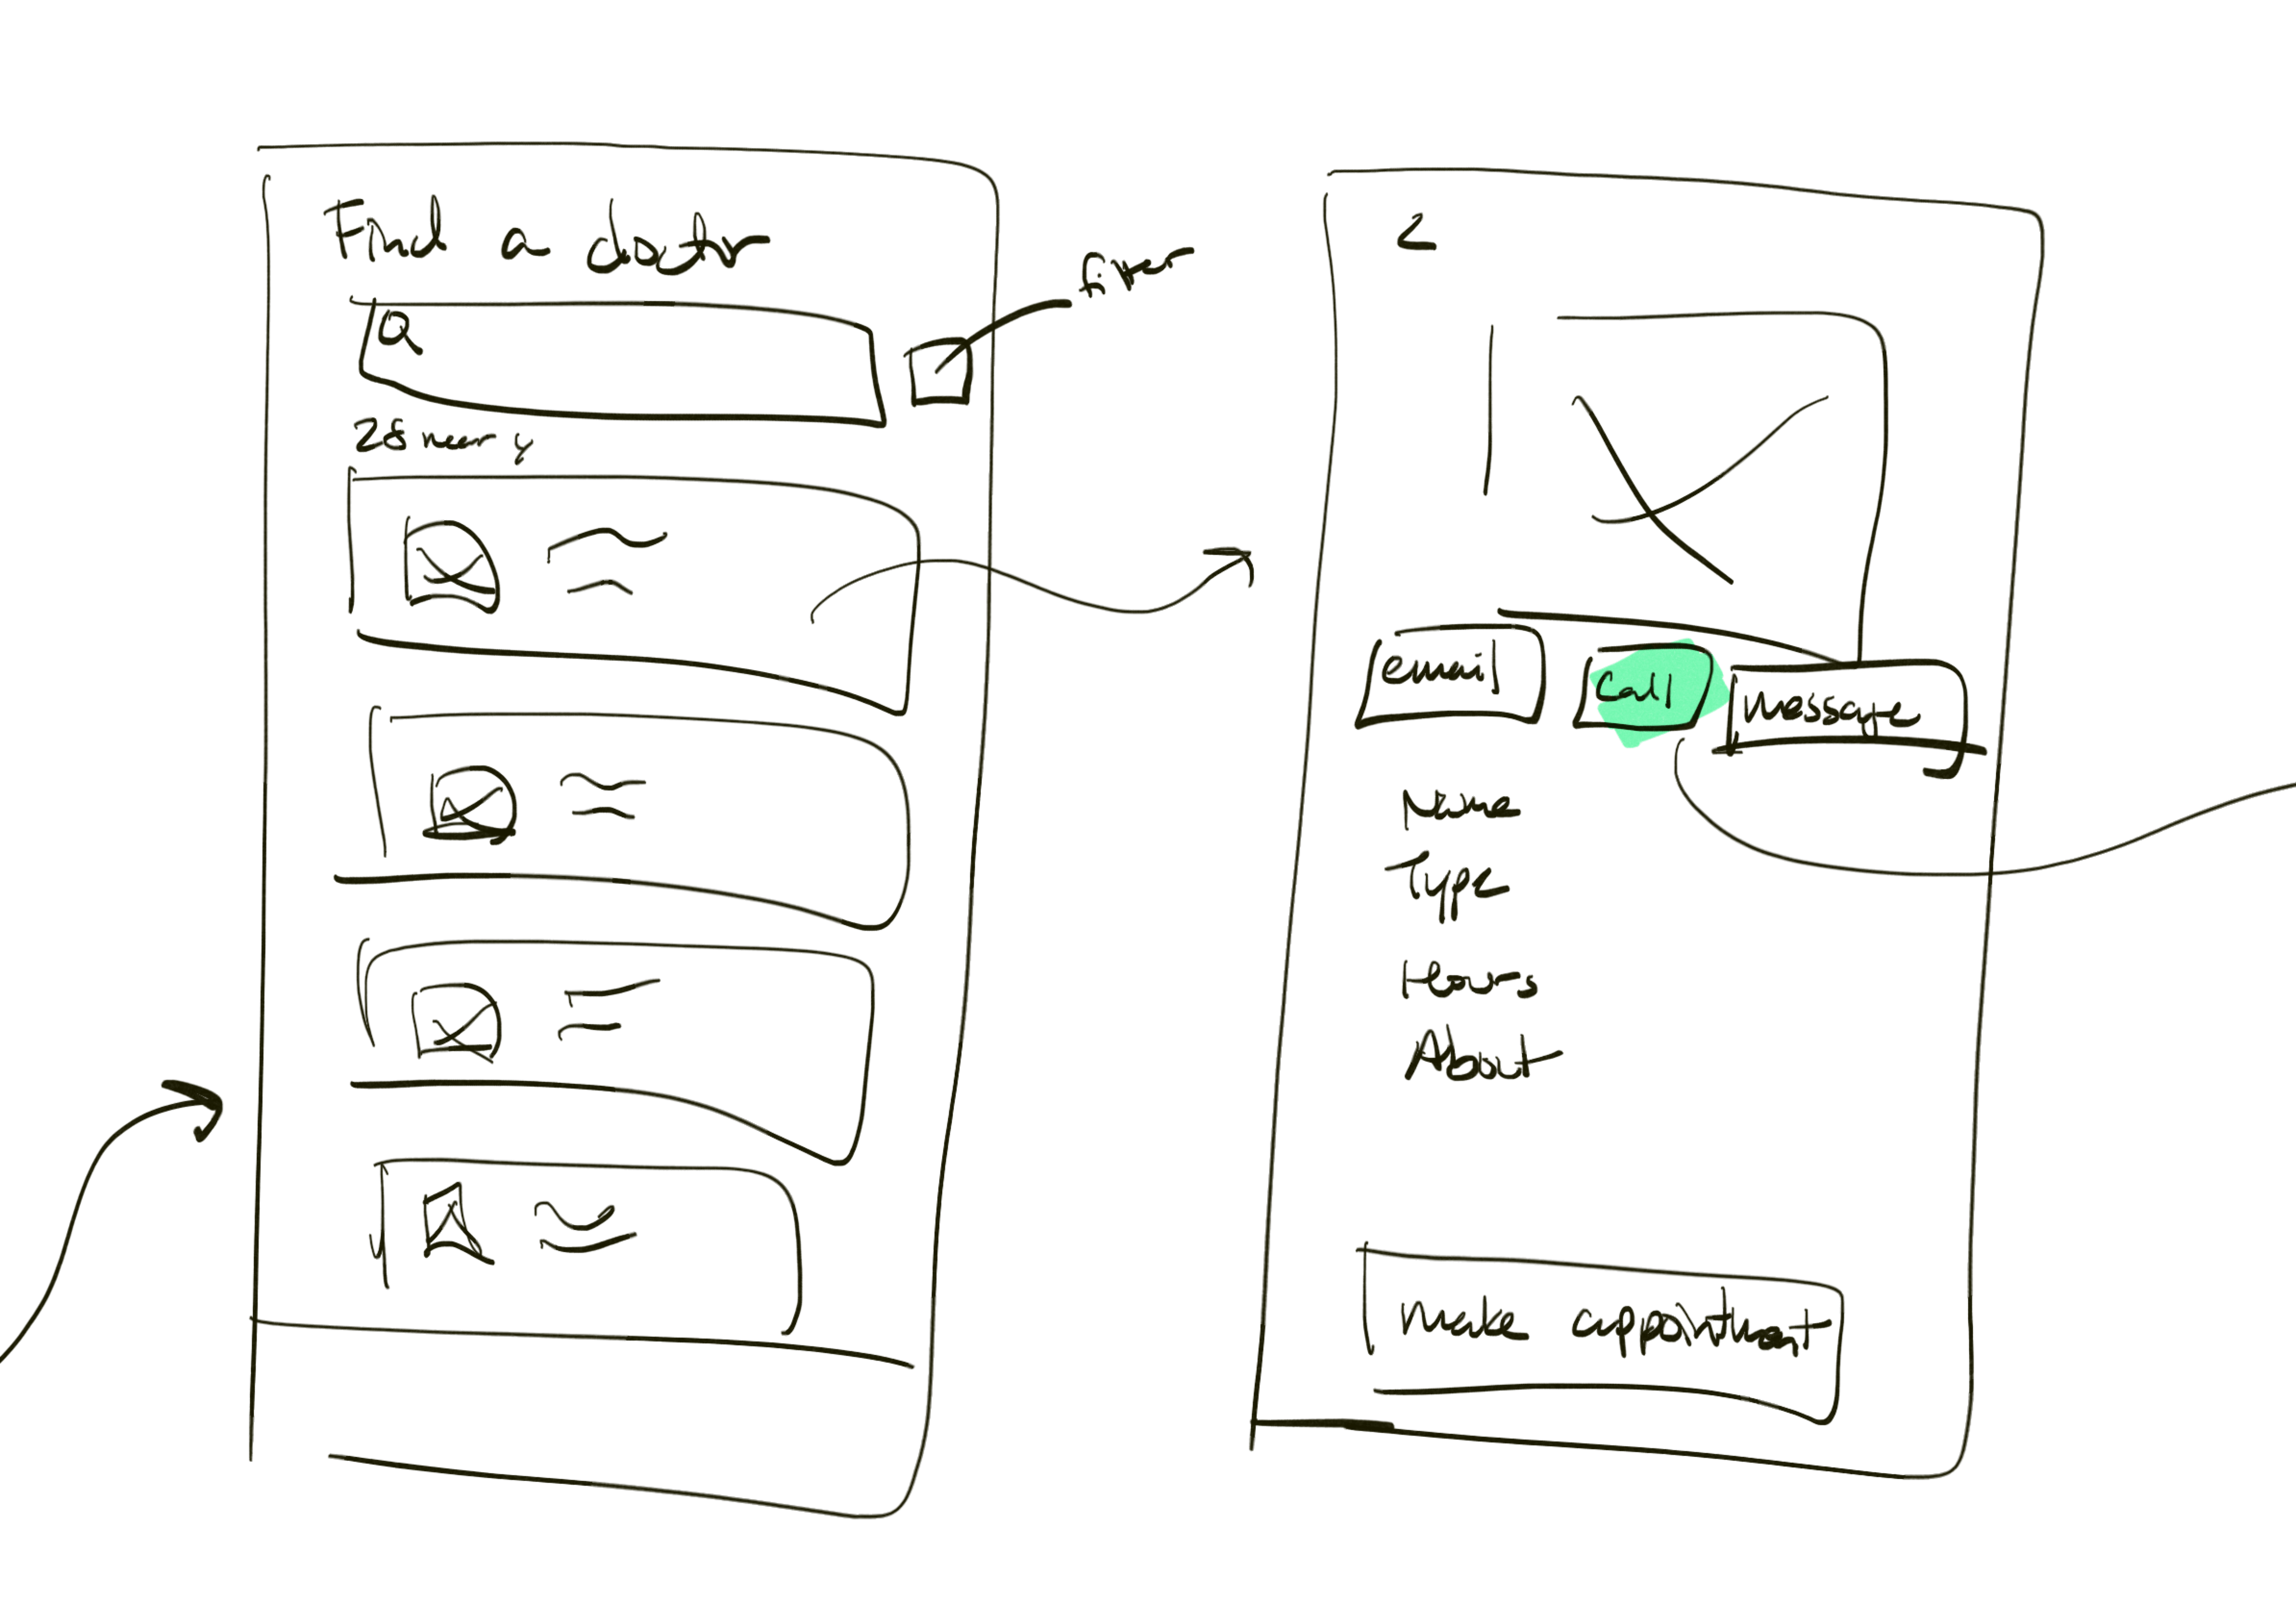 Find a doctor
filter
28 near y
<
email
Call
message
Name
Type
Hours
About
make appointment